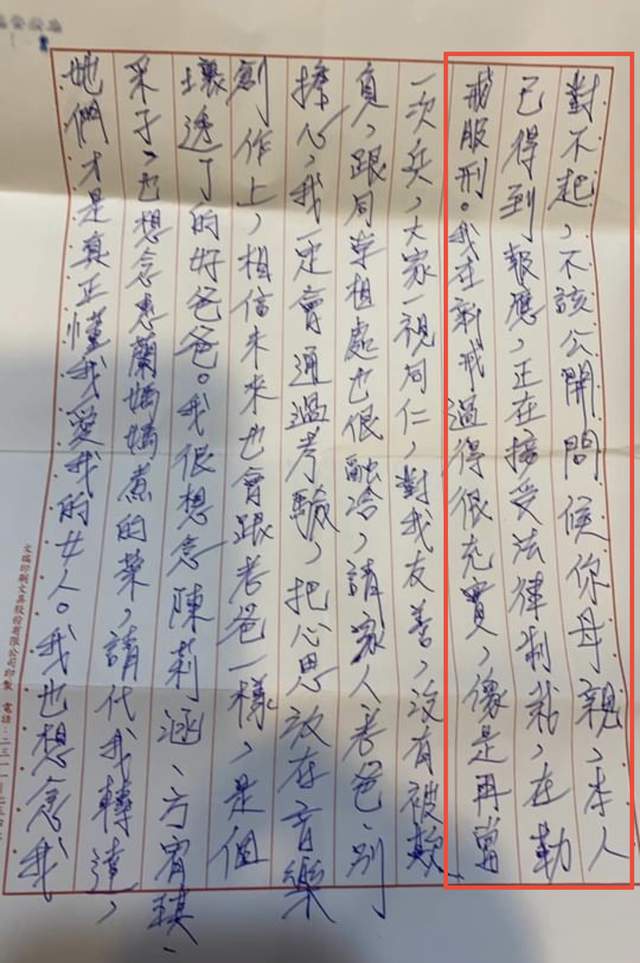 對不起，不該公開問候你母親，本人
已得到報應，正在接受法律制裁，在勒
戒服刑。我在新戒過得很充實，像是再當
一次兵，大家一視同仁，對我友善，沒有被欺
負，跟同學相處也很融洽，請家人老爸、別
擔心，我一定會通過考驗，把心思放在音樂
創作上，相信未來也會跟老爸一樣，是個
壞透了的好爸爸。我很想念陳莉涵、方宥琪、
采子，也想念惠蘭媽媽煮的菜，請代我轉達，
她們才是真正懂我愛我的女人。我也想念我
印刷文具股份有限公司印製 電話：二三一一